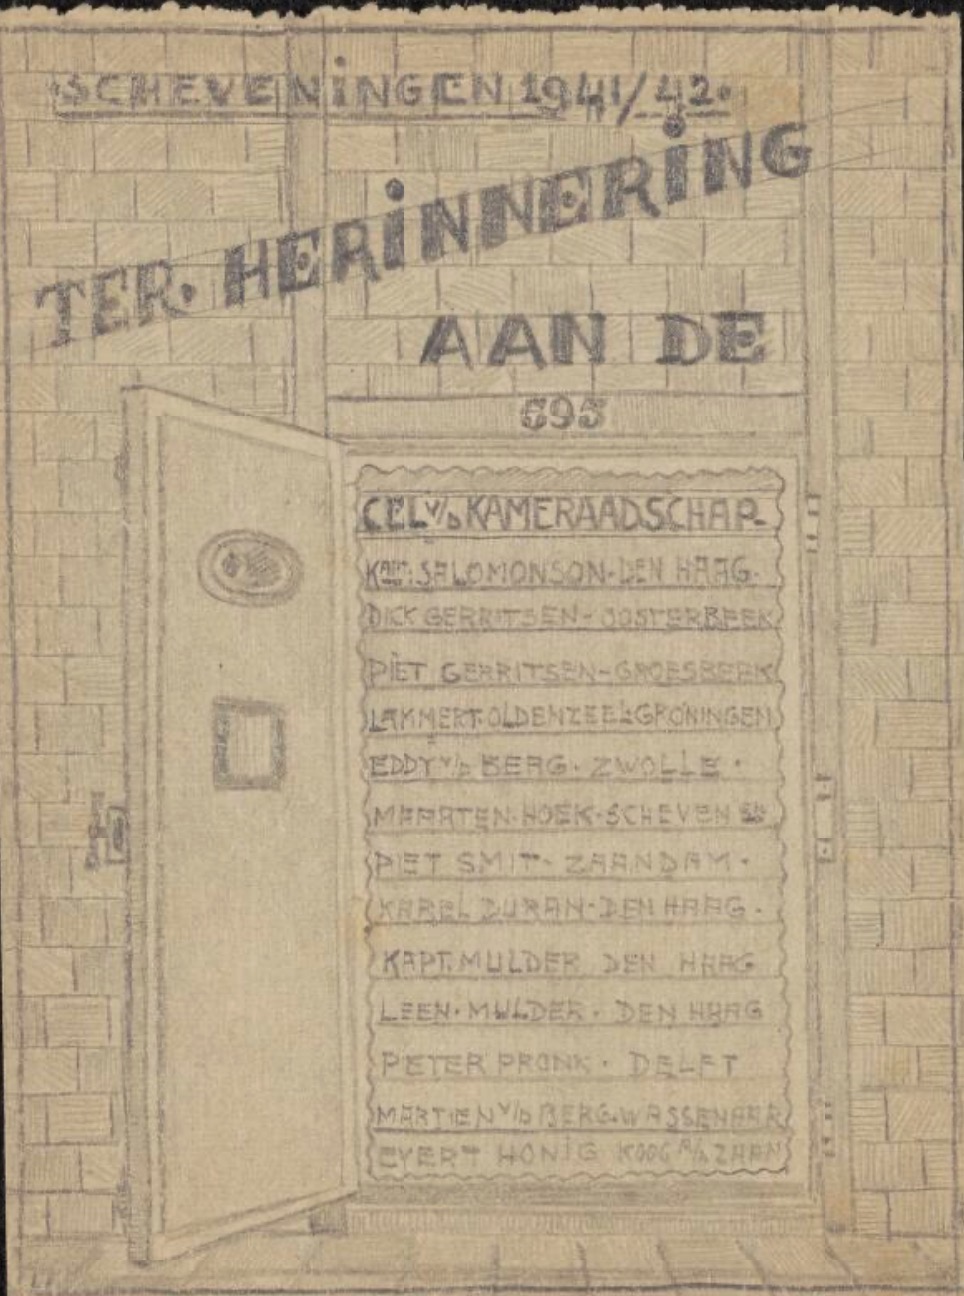 SCHEVENINGEN 1941/42.
TER. HERINNERING
AAN DE
695
CEL V/D KAMERAADSCHAP
KAPT. SALOMONSON. DEN HAAG.
DICK GERRITSEN - OOSTERBEEK
PIET GERRITSEN - GROESBEEK
LAMMERT. OLDENZEEL. GRONINGEN
EDDY V/D BERG. ZWOLLE.
MAARTEN. HOEK. SCHEVEN
PIET SMIT - ZAANDAM.
KAREL DURAN - DEN HAAG.
KAPT. MULDER DEN HAAG
LEEN. MULDER. DEN HAAG
PETER PRONK. DELFT
MARTIEN V/D BERG. WASSENAAR
EVERT HONIG KOOG A/D ZAAN